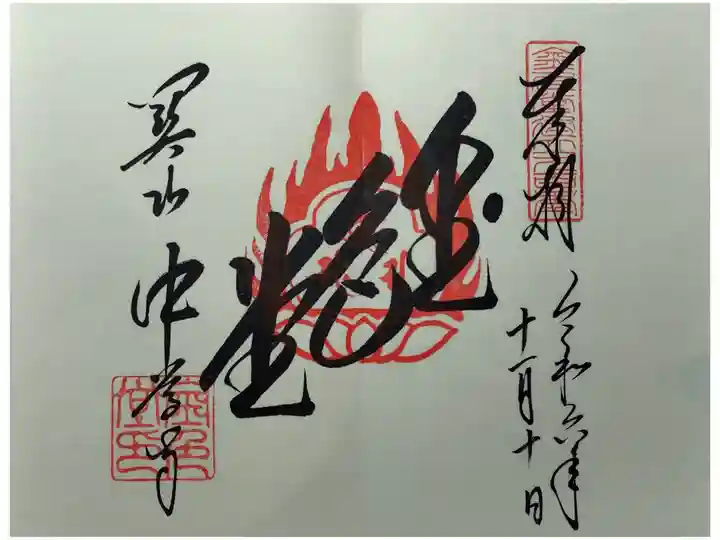 奉拝
令和六年
十一月十日
金色堂
関山 中尊寺